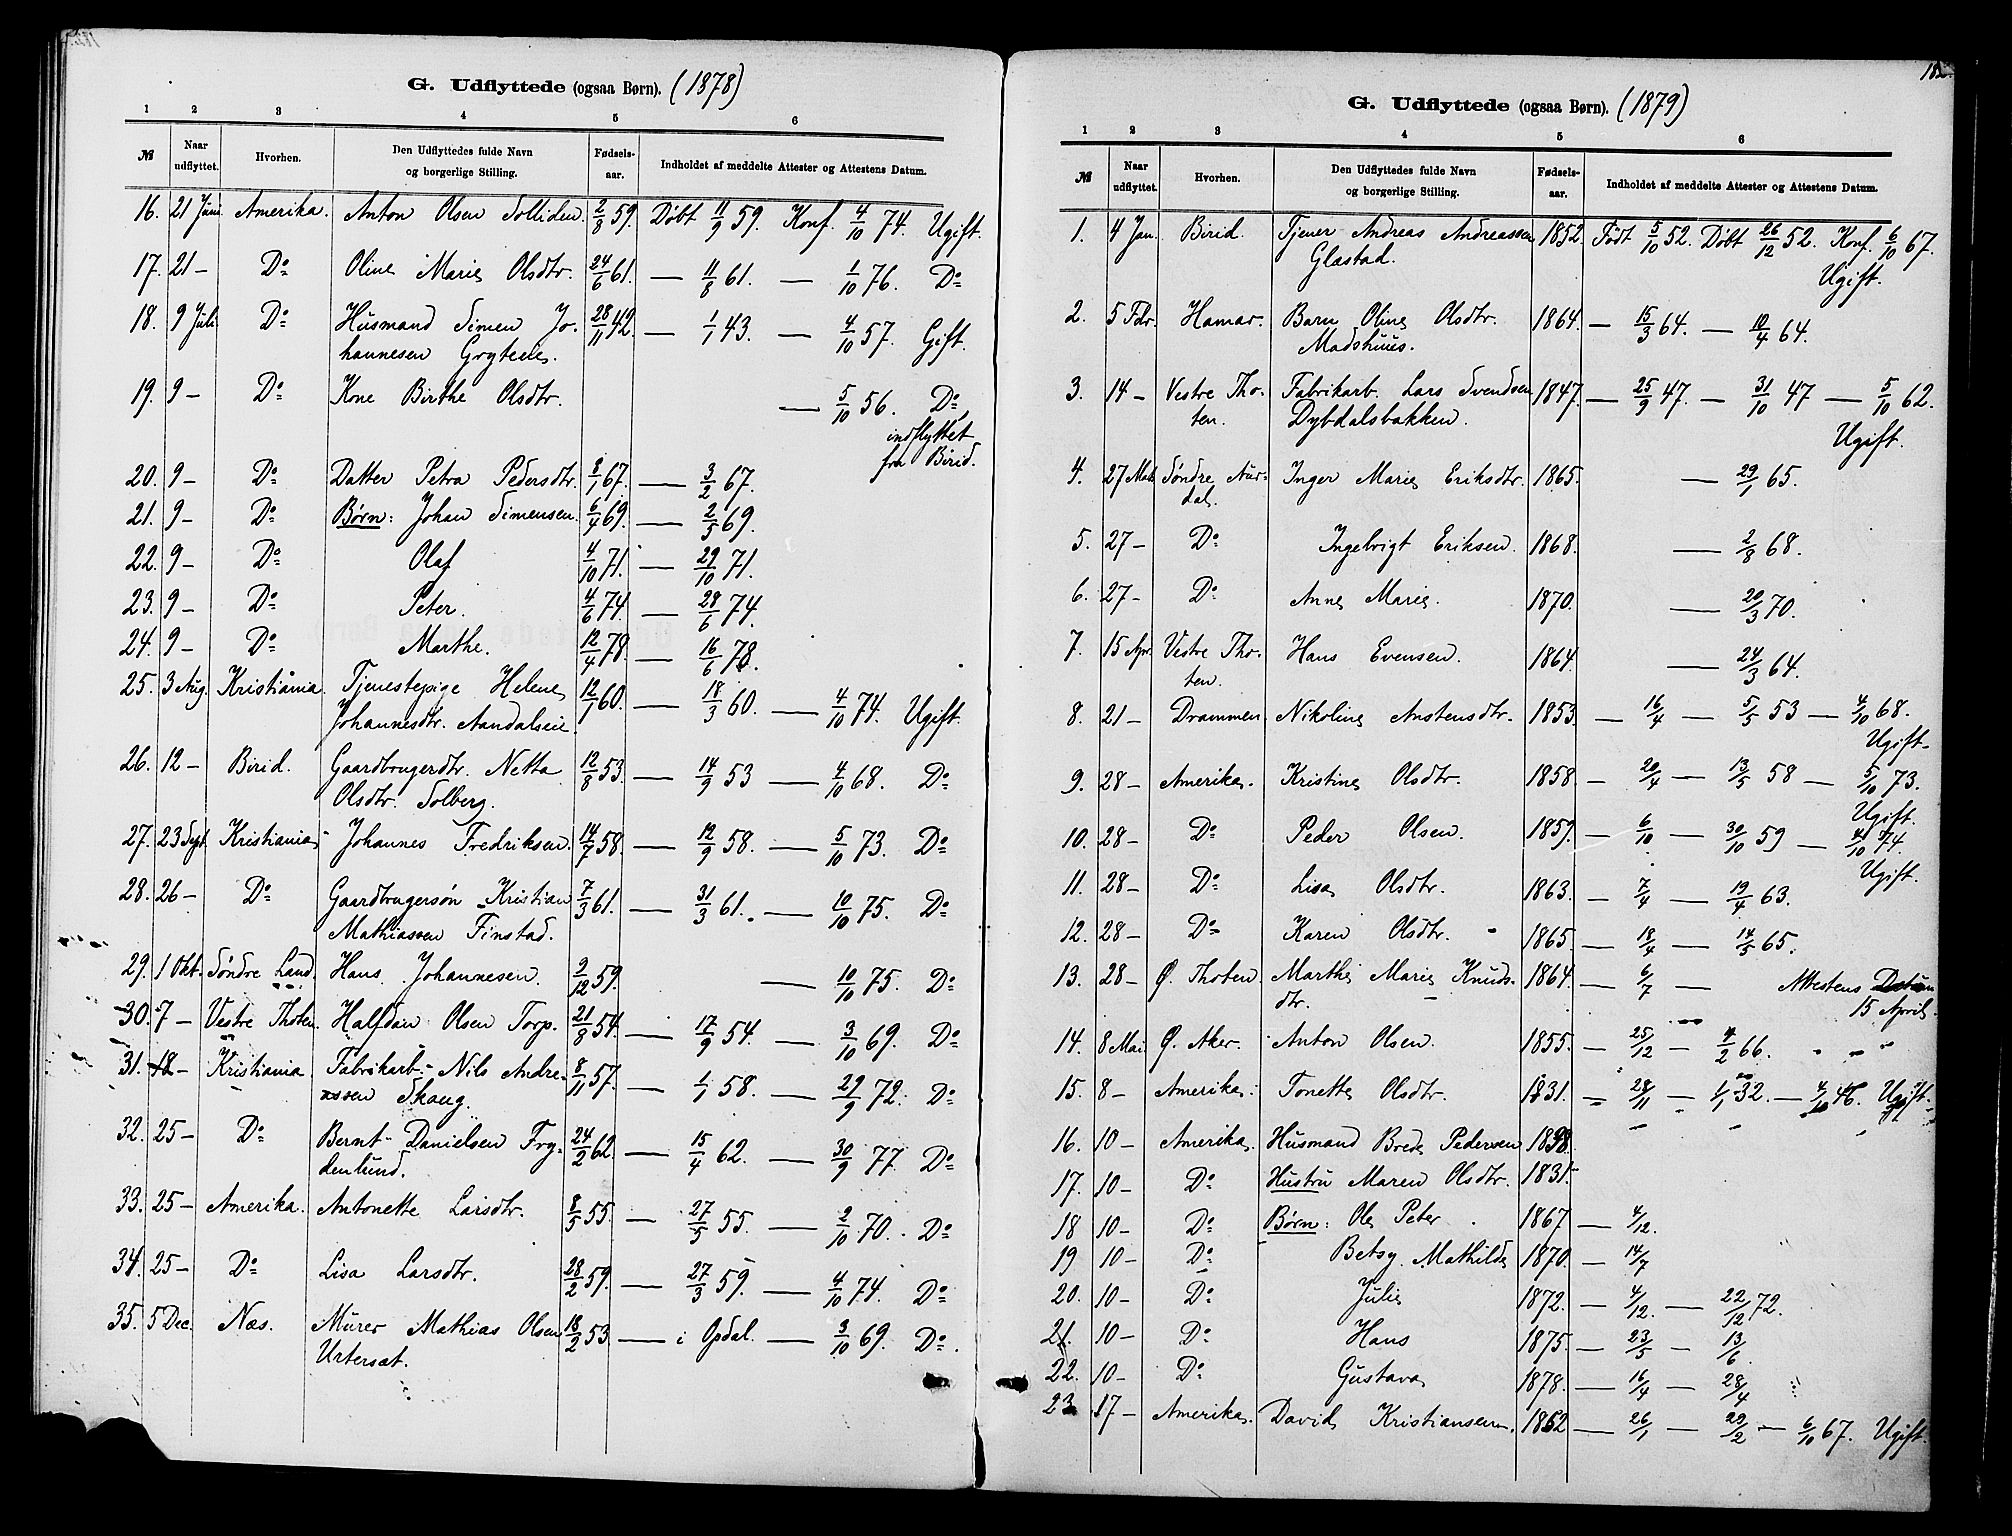 G. Udflyttede (ogsaa Børn). (1878)
1 2 3 4 5 6
№ Naar udflyttet. Hvorhen. Den Udflyttedes fulde Navn og borgerlige Stilling. Fødsels-aar. Indholdet af meddelte Attester og Attestens Datum.
16. 21 Juni Amerika. Anton Olsen Solliden. 2/8 59. Døbt 11/9 59. Konf. 4/10 74. Ugift.
17. 21 – Do Oline Marie Olsdtr. 24/6 61. — 11/8 61. — 1/10 76. Do
18. 9 Juli Do Husmand Simen Jo-
hannesen Grytene. 28/11 42. — 1/1 43. — 4/10 57. Gift.
19. 9 – Do Kone Birthe Olsdtr. — 5/10 56. Do,
indflyttet
fra Birid.
20. 9 – Do Datter Petra Pedersdtr. 8/1 67. — 3/2 67.
21. 9 – Do Børn: Johan Simensen. 6/4 69. — 2/5 69.
22. 9 – Do Olaf 4/10 71. — 29/10 71.
23. 9 – Do Peter. 4/6 74. — 28/6 74.
24. 9 – Do Marthe. 12/4 78. — 16/6 78.
25. 3 Aug. Kristiania. Tjenestepige Helene
Johannesdtr. Aandalseie. 12/1 60. — 18/3 60. — 4/10 74. Ugift.
26. 12 – Birid. Gaardbrugerdtr. Netta
Olsdtr. Solberg. 12/8 53. — 14/9 53 — 4/10 68. Do
27. 23 Sept. Kristiania Johannes Fredriksen. 14/7 58. — 12/9 58. — 5/10 73. Do
28. 26 – Do Gaardbrugersøn Kristian
Mathiassen Finstad. 7/3 61. — 31/3 61. — 10/10 75. Do
29. 1 Okt. Søndre Land. Hans Johannesen. 9/12 59. — 10/10 75. Do
30. 7 – Vestre Thoten. Halfdan Olsen Torp. 21/8 54. — 17/9 54. — 3/10 69. Do
31. 18 – Kristiania Fabrikarb. Nils Andre-
assen Skaug. 8/11 57. — 1/1 58. — 29/9 72. Do
32. 25 – Do Bernt Danielsen Fry-
denlund. 24/2 62. — 15/4 62. — 30/9 77. Do
33. 25 – Amerika. Antonette Larsdtr. 8/5 55. — 27/5 55. — 2/10 70. Do
34. 25 – Do Lisa Larsdtr. 28/2 59. — 27/3 59. — 4/10 74. Do
35. 5 Dec. Næs. Murer Mathias Olsen
Urtersæt. 18/2 53 — i Opdal. — 3/10 69. Do
G. Udflyttede (ogsaa Børn). (1879)
1 2 3 4 5 6
№ Naar udflyttet. Hvorhen. Den Udflyttedes fulde Navn og borgerlige Stilling. Fødsels-aar. Indholdet af meddelte Attester og Attestens Datum.
1. 4 Jan. Birid. Tjener Andreas Andreassen
Glæstad. 1852 Født 5/10 52. Døbt 26/12 52. Konf. 6/10 67.
Ugift.
2. 5 Febr. Hamar. Barn Oline Olsdtr.
Madshuus. 1864. — 15/3 64. — 10/4 64.
3. 14 – Vestre Tho-
ten. Fabrikarb. Lars Svendsen
Dybdalsbakken. 1847. — 25/9 47. — 31/10 47 — 5/10 62.
Ugift.
4. 27 Mar Søndre Aur-
dal. Inger Marie Eriksdtr. 1865. — 29/1 65.
5. 27 – Do Ingebrigt Eriksen. 1868. — 2/8 68.
6. 27 – Do Anne Marie. 1870. — 20/3 70.
7. 15 Apr. Vestre Tho-
ten. Hans Evensen. 1864. — 24/3 64.
8. 21 – Drammen. Nikoline Anstensdtr. 1853. — 16/4 — 5/5 53 — 4/10 68.
Ugift.
9. 28 – Amerika. Kristine Olsdtr. 1858. — 20/4 — 13/5 58 — 5/10 73.
Ugift.
10. 28 – Do Peder Olsen. 1859. — 6/10 — 30/10 59 — 4/10 74.
Ugift.
11. 28 – Do Lisa Olsdtr. 1863. — 7/4 — 19/4 63.
12. 28 – Do Karen Olsdtr. 1865. — 18/4 — 14/5 65.
13. 28 – Ø. Thoten Marthe Marie Knuds-
dtr. 1864. — 6/7 — Attestens Datum
15 April.
14. 8 Mai Ø. Aker. Anton Olsen. 1855. — 25/12 — 4/2 66.
15. 8 – Amerika. Tonette Olsdtr. 1831. — 28/11 — 1/1 32. — 4/10 46. Ugift.
16. 10 – Amerika. Husmand Brede Pedersen
17. 10 – Do Hustru Maren Olsdtr. 1831.
18 10 – Do Børn: Ole Peter 1867 — 4/12.
19 10 – Do Betsy Mathilde 1870. — 14/7
20. 10 – Do Julie 1872. — 4/12. — 22/12 72.
21. 10 – Do Hans 1875. — 23/5 — 13/6.
22. 10 – Do Gustava 1878. — 16/4 — 28/4
23 17 – Amerika. David Kristiansen. 1852 — 26/1 — 29/2 — 6/10 67. Ugift.